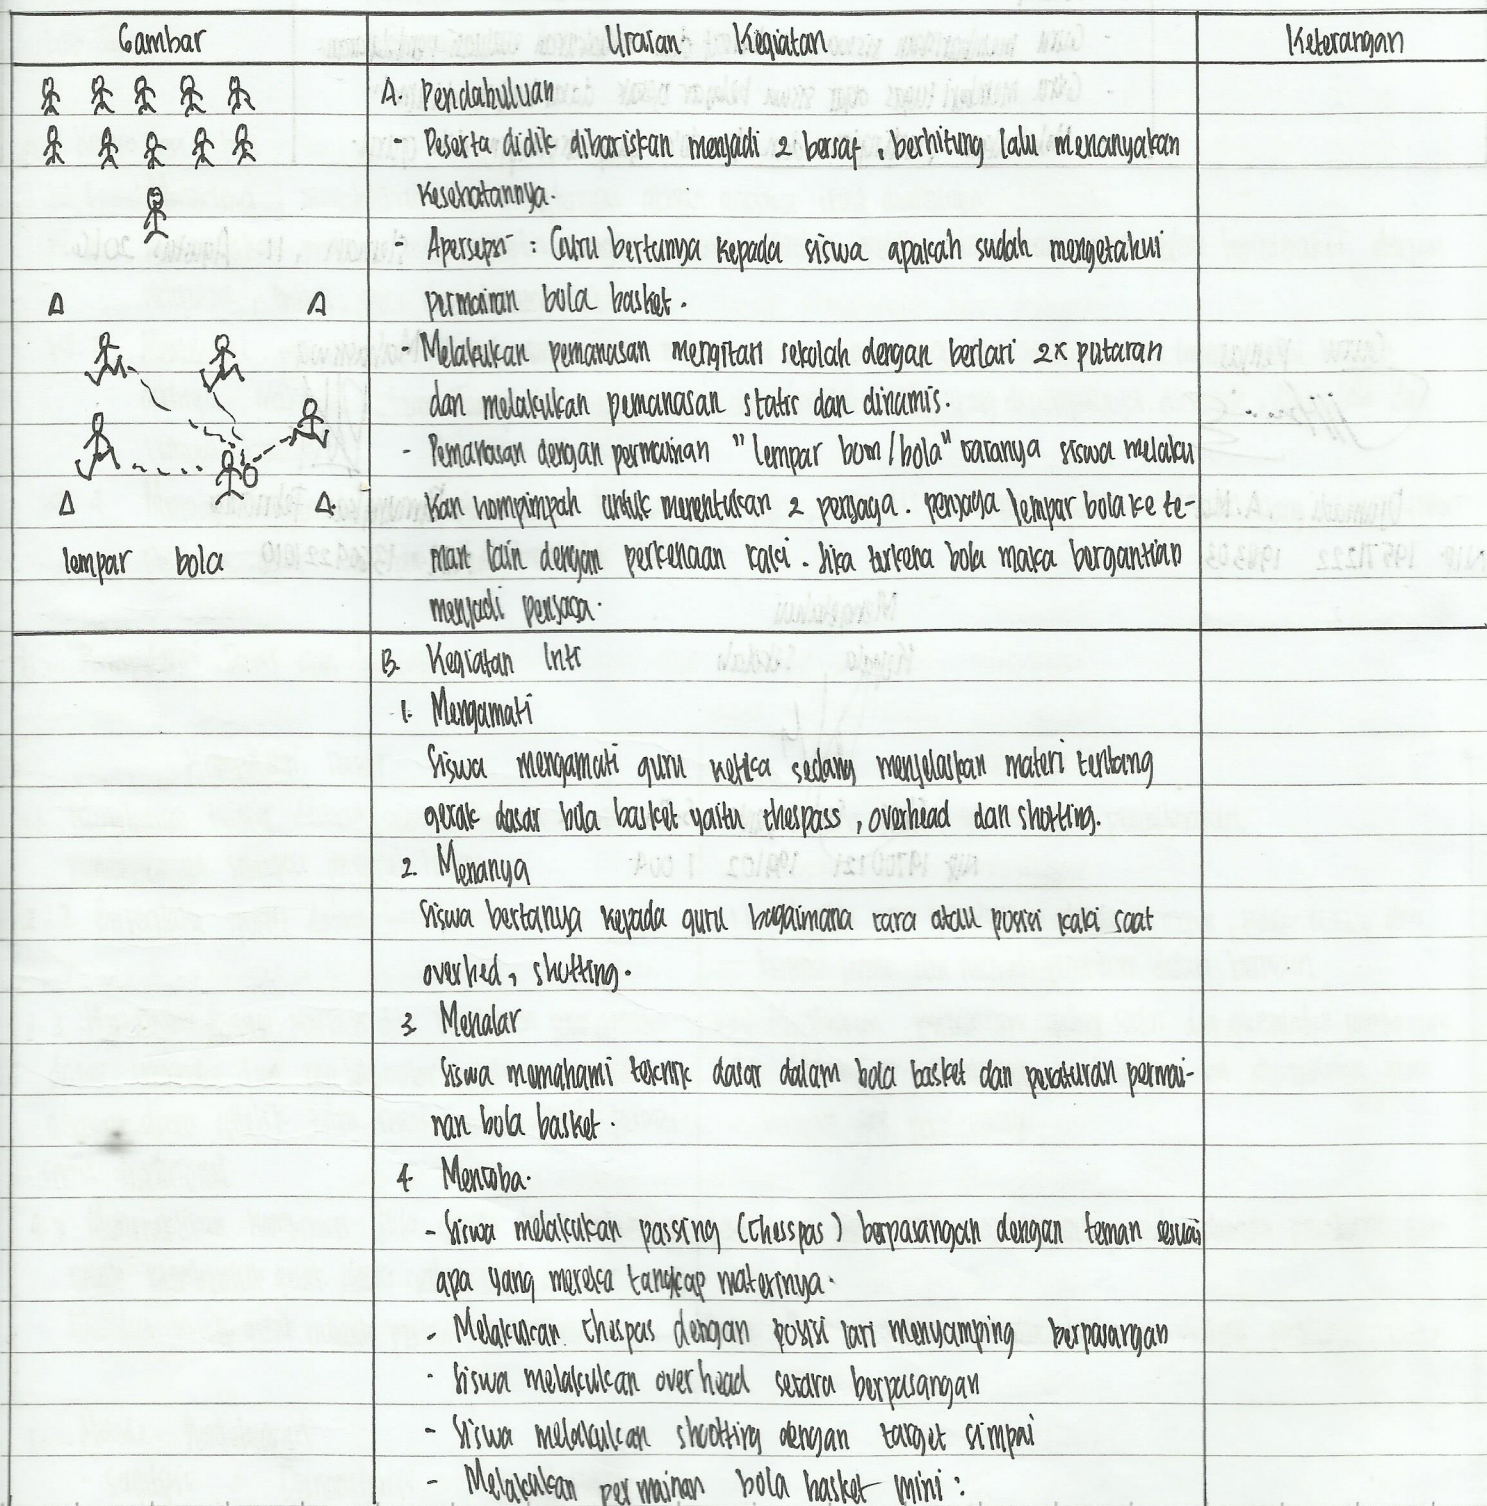 Gambar
Uraian Kegiatan
Keterangan
A. Pendahuluan
- Peserta didik dibariskan menjadi 2 bersaf, berhitung lalu menanyakan
kesehatannya.
- Apersepsi : Guru bertanya kepada siswa apakah sudah mengetahui
permainan bola basket.
- Melakukan pemanasan mengitari sekolah dengan berlari 2x putaran
dan melakukan pemanasan statis dan dinamis.
- Pemanasan dengan permainan "lempar bom/bola" caranya siswa melaku
kan hompimpah untuk menentukan 2 penjaga. penjaga lempar bola ke te-
man lain dengan perkenaan kaki. Jika terkena bola maka bergantian
menjadi penjaga.
lempar bola
B. Kegiatan Inti
1. Mengamati
Siswa mengamati guru ketika sedang menjelaskan materi tentang
gerak dasar bola basket yaitu chespass, overhead dan shotting.
2. Menanya
Siswa bertanya kepada guru bagaimana cara atau posisi kaki saat
overhed, shutting.
3. Menalar
Siswa memahami teknik dasar dalam bola basket dan peraturan permai-
nan bola basket.
4. Mencoba.
- Siswa melakukan passing (Chesspas) berpasangan dengan teman sesuai
apa yang mereka tangkap materinya.
- Melakukan chespas dengan posisi lari menyamping berpasangan
- Siswa melakukan overhead secara berpasangan
- Siswa melakukan shootting dengan target simpai
- Melakukan permainan bola basket mini :